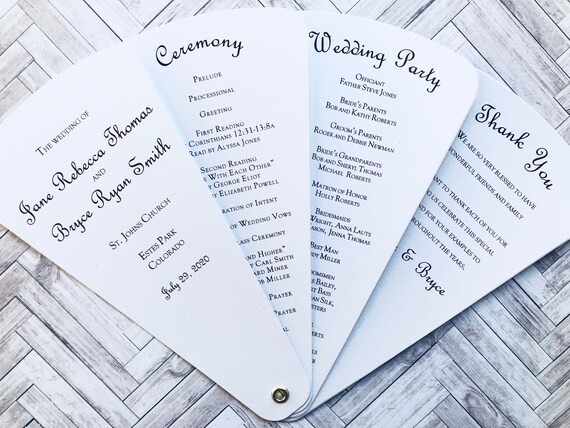 The Wedding of
Jane Rebecca Thomas
and
Bryce Ryan Smith
St. Johns Church
Estes Park
Colorado
July 29, 2020
Ceremony
Prelude
Processional
Greeting
First Reading
Corinthians 12:31-13:8a
Read by Alyssa Jones
Second Reading
With Each Other"
George Eliot
Elizabeth Powell
of Intent
of Wedding Vows
Ceremony
Higher"
Carl Smith
Miner
Miller
Prayer
Prayer
Wedding Party
Officiant
Father Steve Jones
Bride's Parents
Bob and Kathy Roberts
Groom's Parents
Roger and Debbie Newman
Bride's Grandparents
Bob and Sheryl Thomas
Michael Roberts
Matron of Honor
Holly Roberts
Bridesmaids
Wright, Anna Lauts
Jenna Thomas
Best Man
Miller
Bailey,
Bass
Silk,
Peters
Thank You
We are so very blessed to have
wonderful friends and family
to thank each of you for
us celebrate this special
and for your examples to
the years.
& Bryce